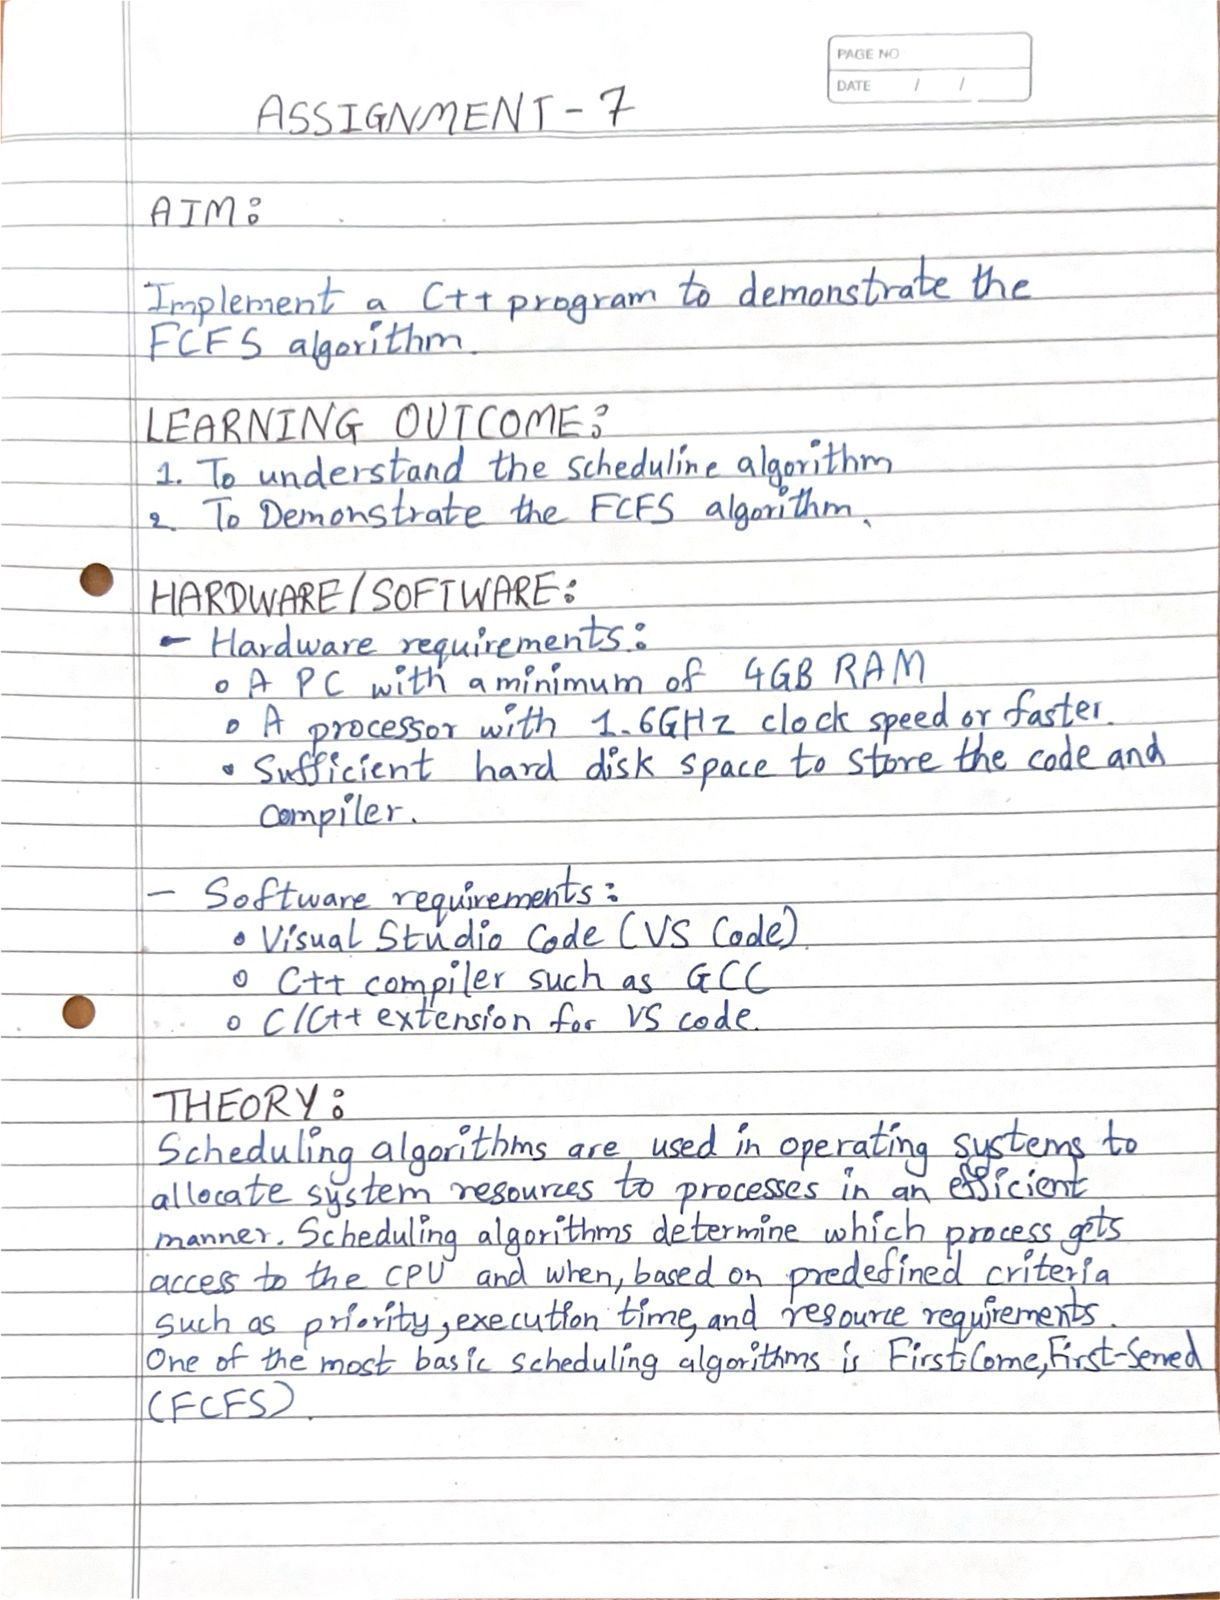 PAGE NO
DATE / /
ASSIGNMENT - 7
AIM:
Implement a C++ program to demonstrate the
FCFS algorithm.
LEARNING OUTCOME:
1. To understand the scheduline algorithm
2. To Demonstrate the FCFS algorithm.
HARDWARE/SOFTWARE:
- Hardware requirements:
o A PC with a minimum of 4GB RAM
o A processor with 1.6GHz clock speed or faster.
• Sufficient hard disk space to store the code and
compiler.
- Software requirements:
• Visual Studio Code (VS Code)
o C++ compiler such as GCC
o C/C++ extension for VS code.
THEORY:
Scheduling algorithms are used in operating systems to
allocate system resources to processes in an efficient
manner. Scheduling algorithms determine which process gets
access to the CPU and when, based on predefined criteria
such as priority, execution time, and resource requirements.
One of the most basic scheduling algorithms is First-Come, First-Served
(FCFS).